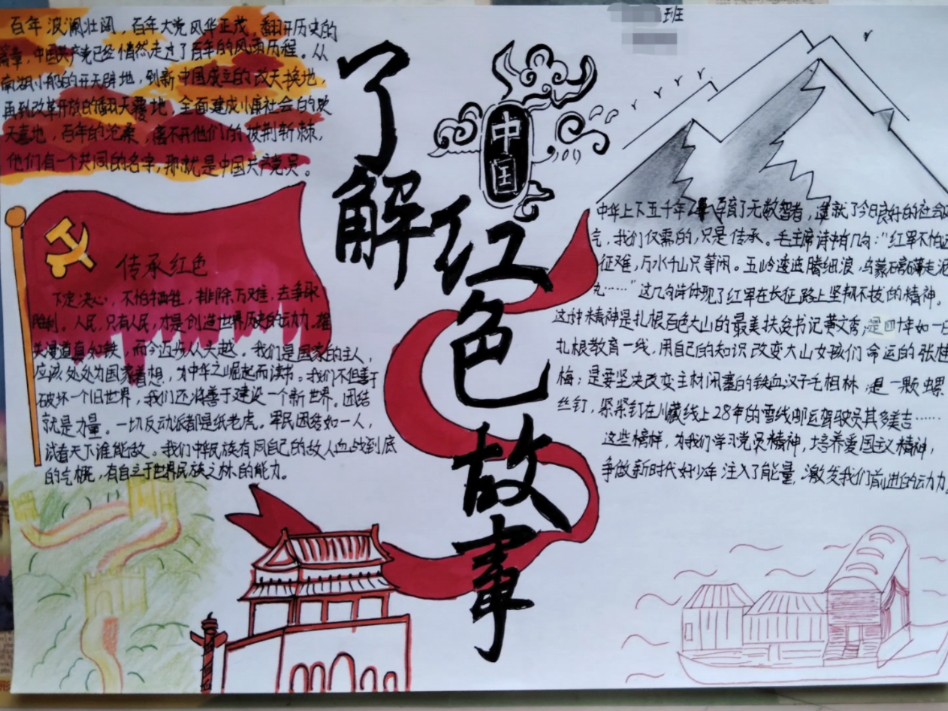 百年波澜壮阔，百年大党风华正茂。翻开历史的
篇章，中国共产党已经悄然走过了百年的风雨历程。从
南湖小船的开天辟地，到新中国成立的改天换地，
再到改革开放的翻天覆地，全面建成小康社会的
天喜地，百年的沧桑，离不开他们的披荆斩棘，
他们有一个共同的名字，那就是中国共产党员。
传承红色
下定决心，不怕牺牲，排除万难，去争取
胜利。人民，只有人民，才是创造世界历史的动力。雄
关漫道真如铁，而今迈步从头越。我们是国家的主人，
应该处处为国家着想，为中华之崛起而读书。我们不但善于
破坏一个旧世界，我们还将善于建设一个新世界。团结
就是力量。一切反动派都是纸老虎。军民团结如一人，
试看天下谁能敌。我们中华民族有同自己的敌人血战到底
的气概，有自立于世界民族之林的能力。
了解红色故事
中国
班
中华上下五千年，孕育了无数智者，造就了今日良好的社会
气，我们仅需的，只是传承。毛主席诗中有几句："红军不怕远
征难，万水千山只等闲。五岭逶迤腾细浪，乌蒙磅礴走泥
丸……"这几句诗体现了红军在长征路上坚韧不拔的精神，
这种精神是扎根百色大山的最美扶贫书记黄文秀；是四十年如一
扎根教育一线，用自己的知识改变大山女孩们命运的张桂
梅；是要坚决改变主村闭塞的铁血汉子毛相林；是一颗
丝钉，紧紧钉在川藏线上28年的雪线邮运驾驶员其美多吉……
这些榜样，为我们学习党员精神，培养爱国主义精神，
争做新时代好少年注入了能量，激发我们前进的动力